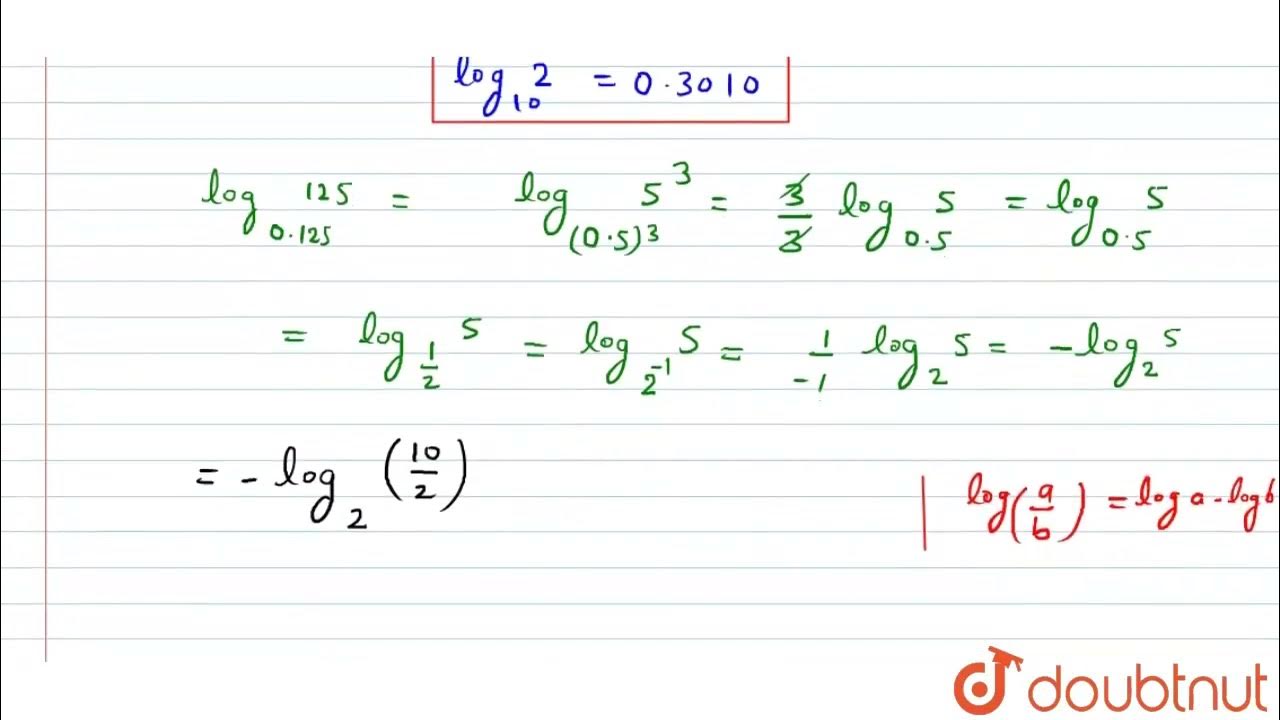 log₁₀ 2 = 0.3010
log₀.₁₂₅ 125 = log₍₀.₅₎³ 5³ = 3/3 log₀.₅ 5 = log₀.₅ 5
= log_{1/2} 5 = log_{2⁻¹} 5 = 1/-1 log₂ 5 = -log₂ 5
= - log₂ (10/2)
log(a/b) = log a - log b
doubtnut